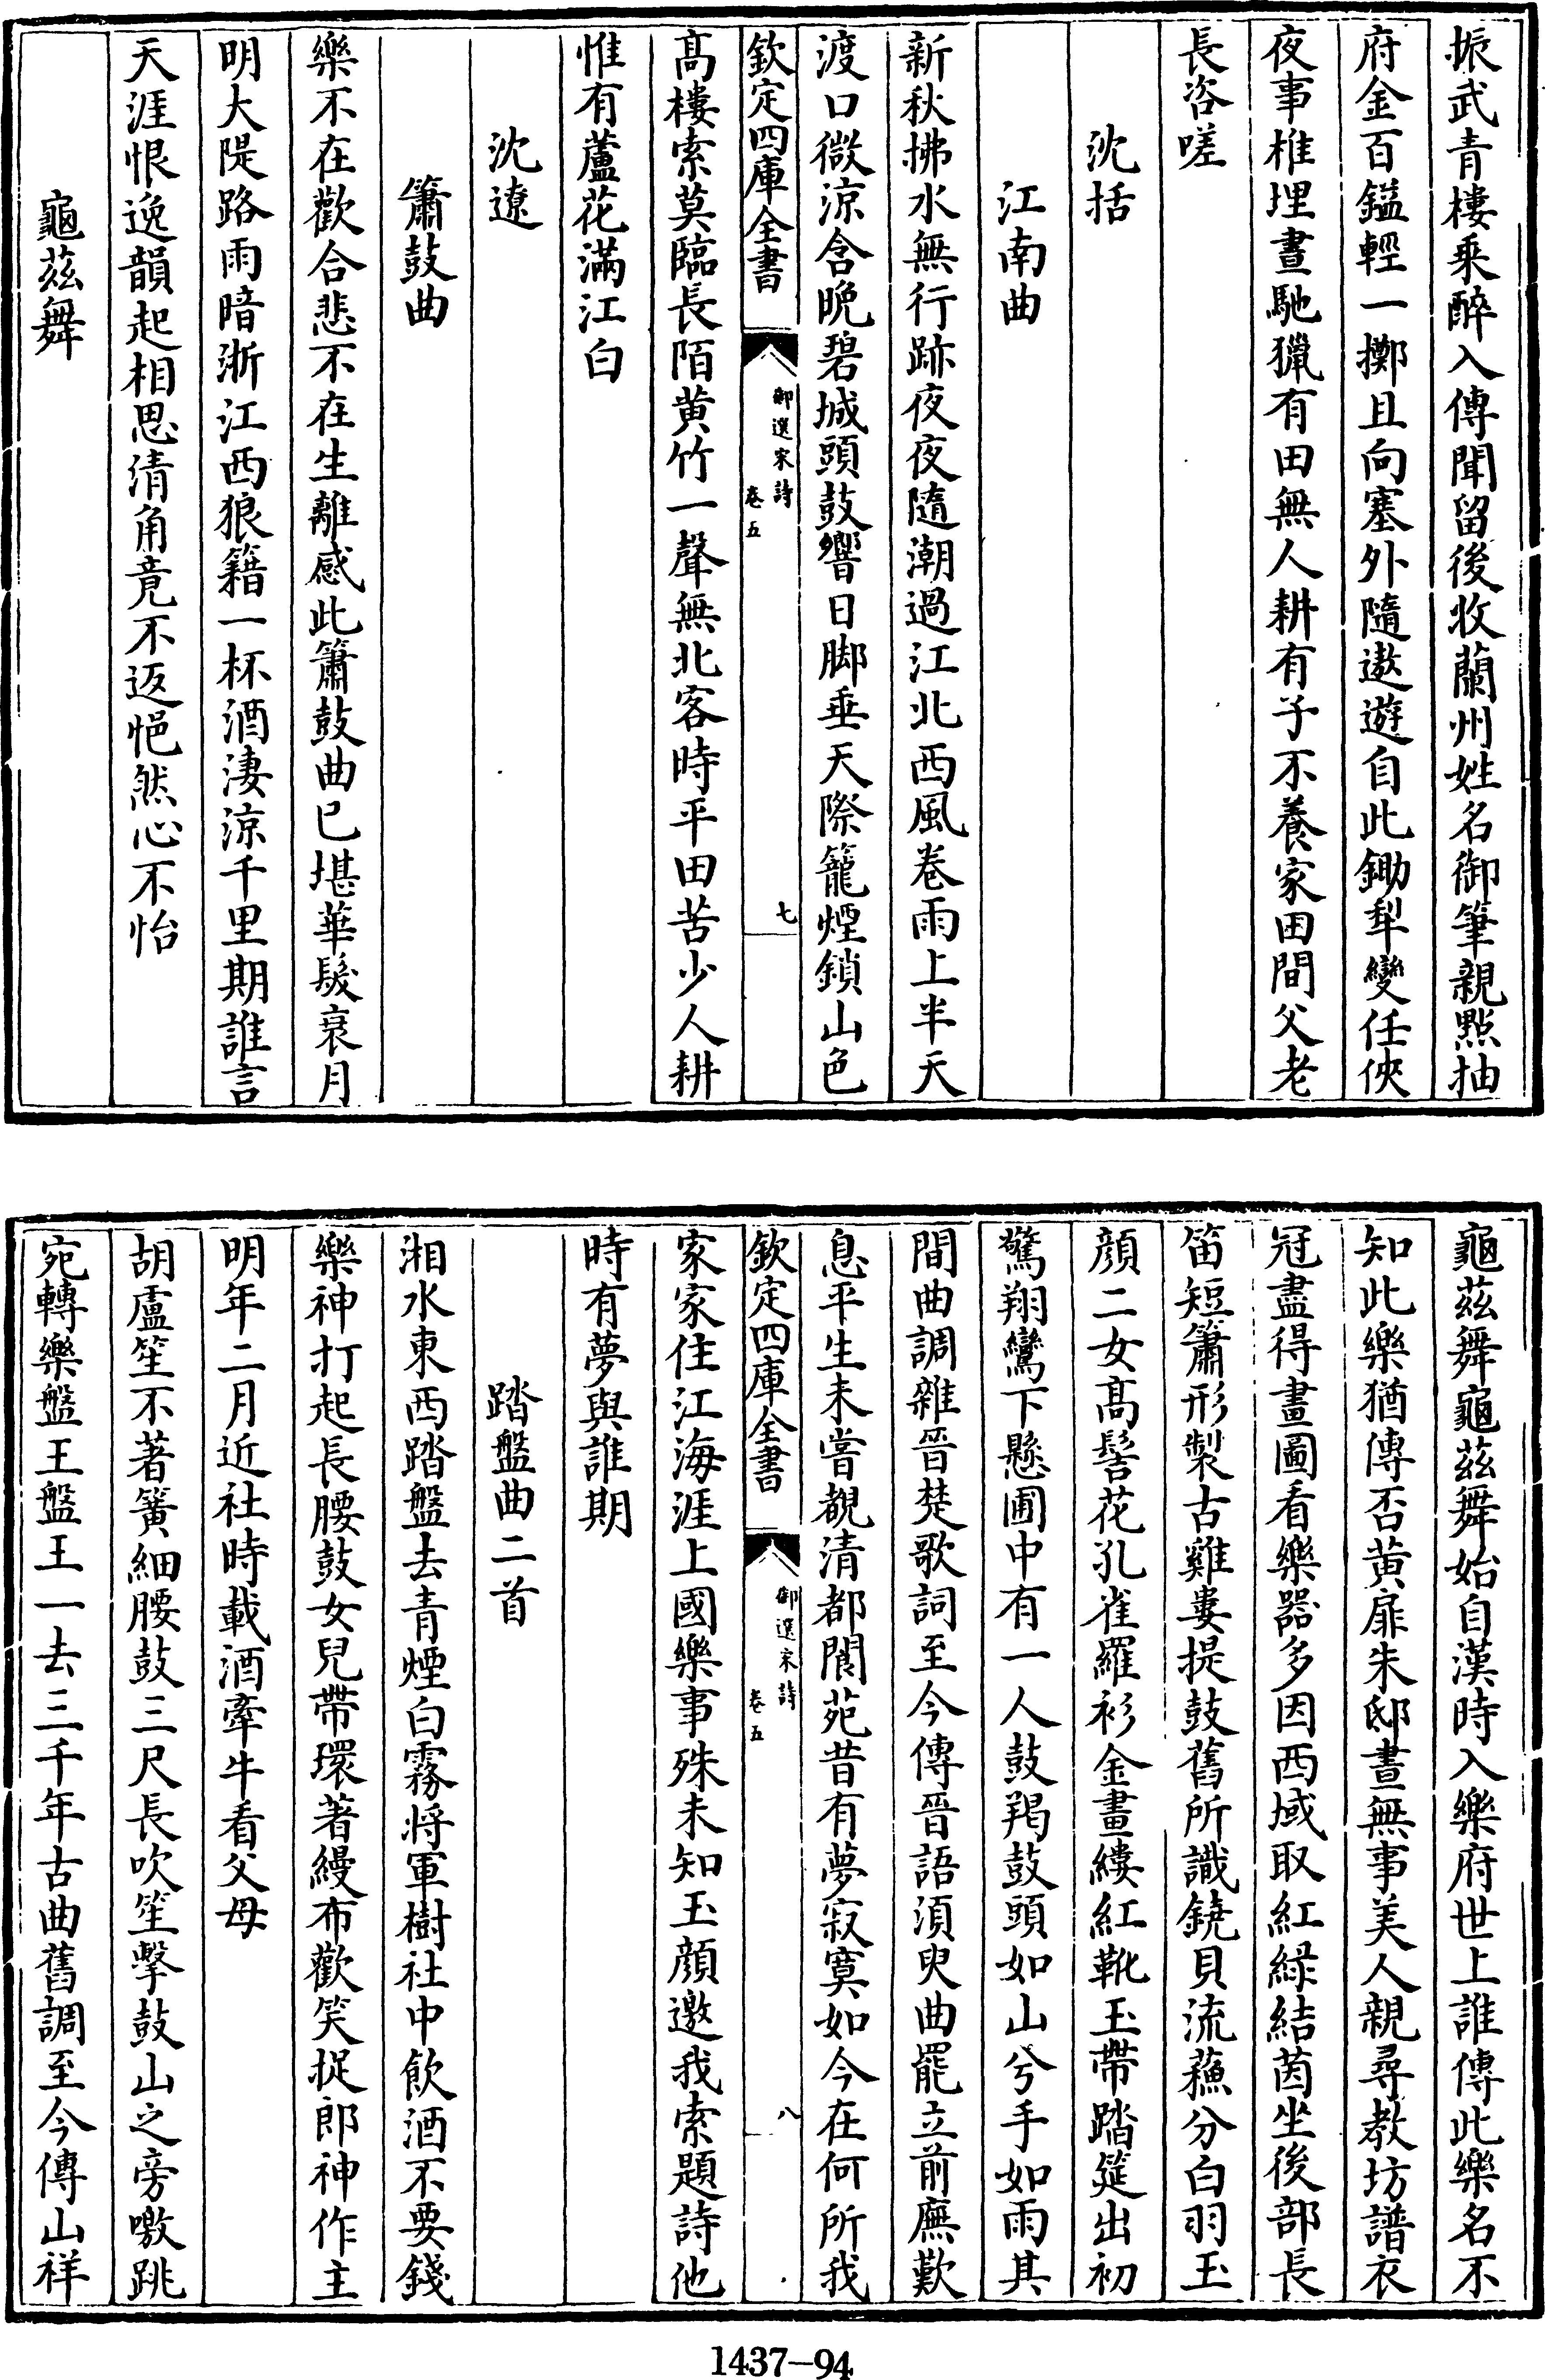 振武青樓乘醉入傳聞留後收蘭州姓名御筆親㸃抽
府金百鎰輕一擲且向塞外隨遨遊自此鋤犁變任俠
夜事椎埋晝馳獵有田無人耕有子不養家田間父老
長咨嗟
沈括
江南曲
新秋拂水無行跡夜夜隨潮過江北西風卷雨上半天
渡口微涼含晩碧城頭鼓響日脚垂天際籠煙鎖山色
髙樓索莫臨長陌黄竹一聲無北客時平田苦少人耕
惟有蘆花滿江白
沈遼
簫鼓曲
樂不在歡合悲不在生離感此簫鼓曲已堪華髮衰月
明大隄路雨暗浙江西狼籍一杯酒淒涼千里期誰言
天涯恨逸韻起相思清角竟不返悒然心不怡
龜兹舞
欽定四庫全書
御選宋詩
卷五
七
龜兹舞龜兹舞始自漢時入樂府世上誰傳此樂名不
知此樂猶傳否黄扉朱邸晝無事美人親尋教坊譜衣
冠盡得畫圖看樂器多因西域取紅緑結茵坐後部長
笛短簫形製古雞婁提鼓舊所識鐃貝流蘇分白羽玉
顔二女髙髻花孔雀羅衫金畫縷紅靴玉帶踏筵出初
驚翔鸞下懸圃中有一人鼓羯鼓頭如山兮手如雨其
間曲調雜晉楚歌詞至今傳晉語須臾曲罷立前廡歎
息平生未嘗覩清都閬苑昔有夢寂寞如今在何所我
家家住江海涯上國樂事殊未知玉顔邀我索題詩他
時有夢與誰期
踏盤曲二首
湘水東西踏盤去青煙白霧將軍樹社中飲酒不要錢
樂神打起長腰鼓女兒帶環著縵布歡笑捉郎神作主
明年二月近社時載酒牽牛看父母
胡盧笙不著簧細腰鼓三尺長吹笙擊鼓山之旁噭跳
宛轉樂盤王盤王一去三千年古曲舊調至今傳山祥
欽定四庫全書
御選宋詩
卷五
八
1437-94